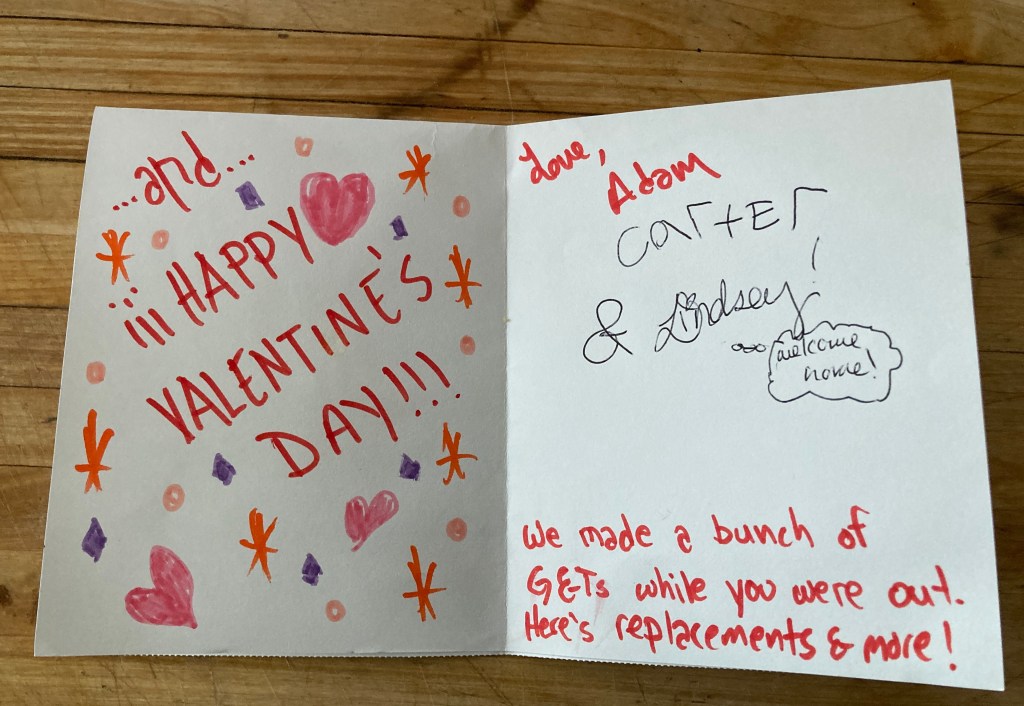 ...and...
¡¡¡HAPPY
VALENTINE'S
DAY!!!
Love,
Adam
CarTEr
& Lindsey!
welcome
home!
We made a bunch of
G&Ts while you were out.
Here's replacements & more!